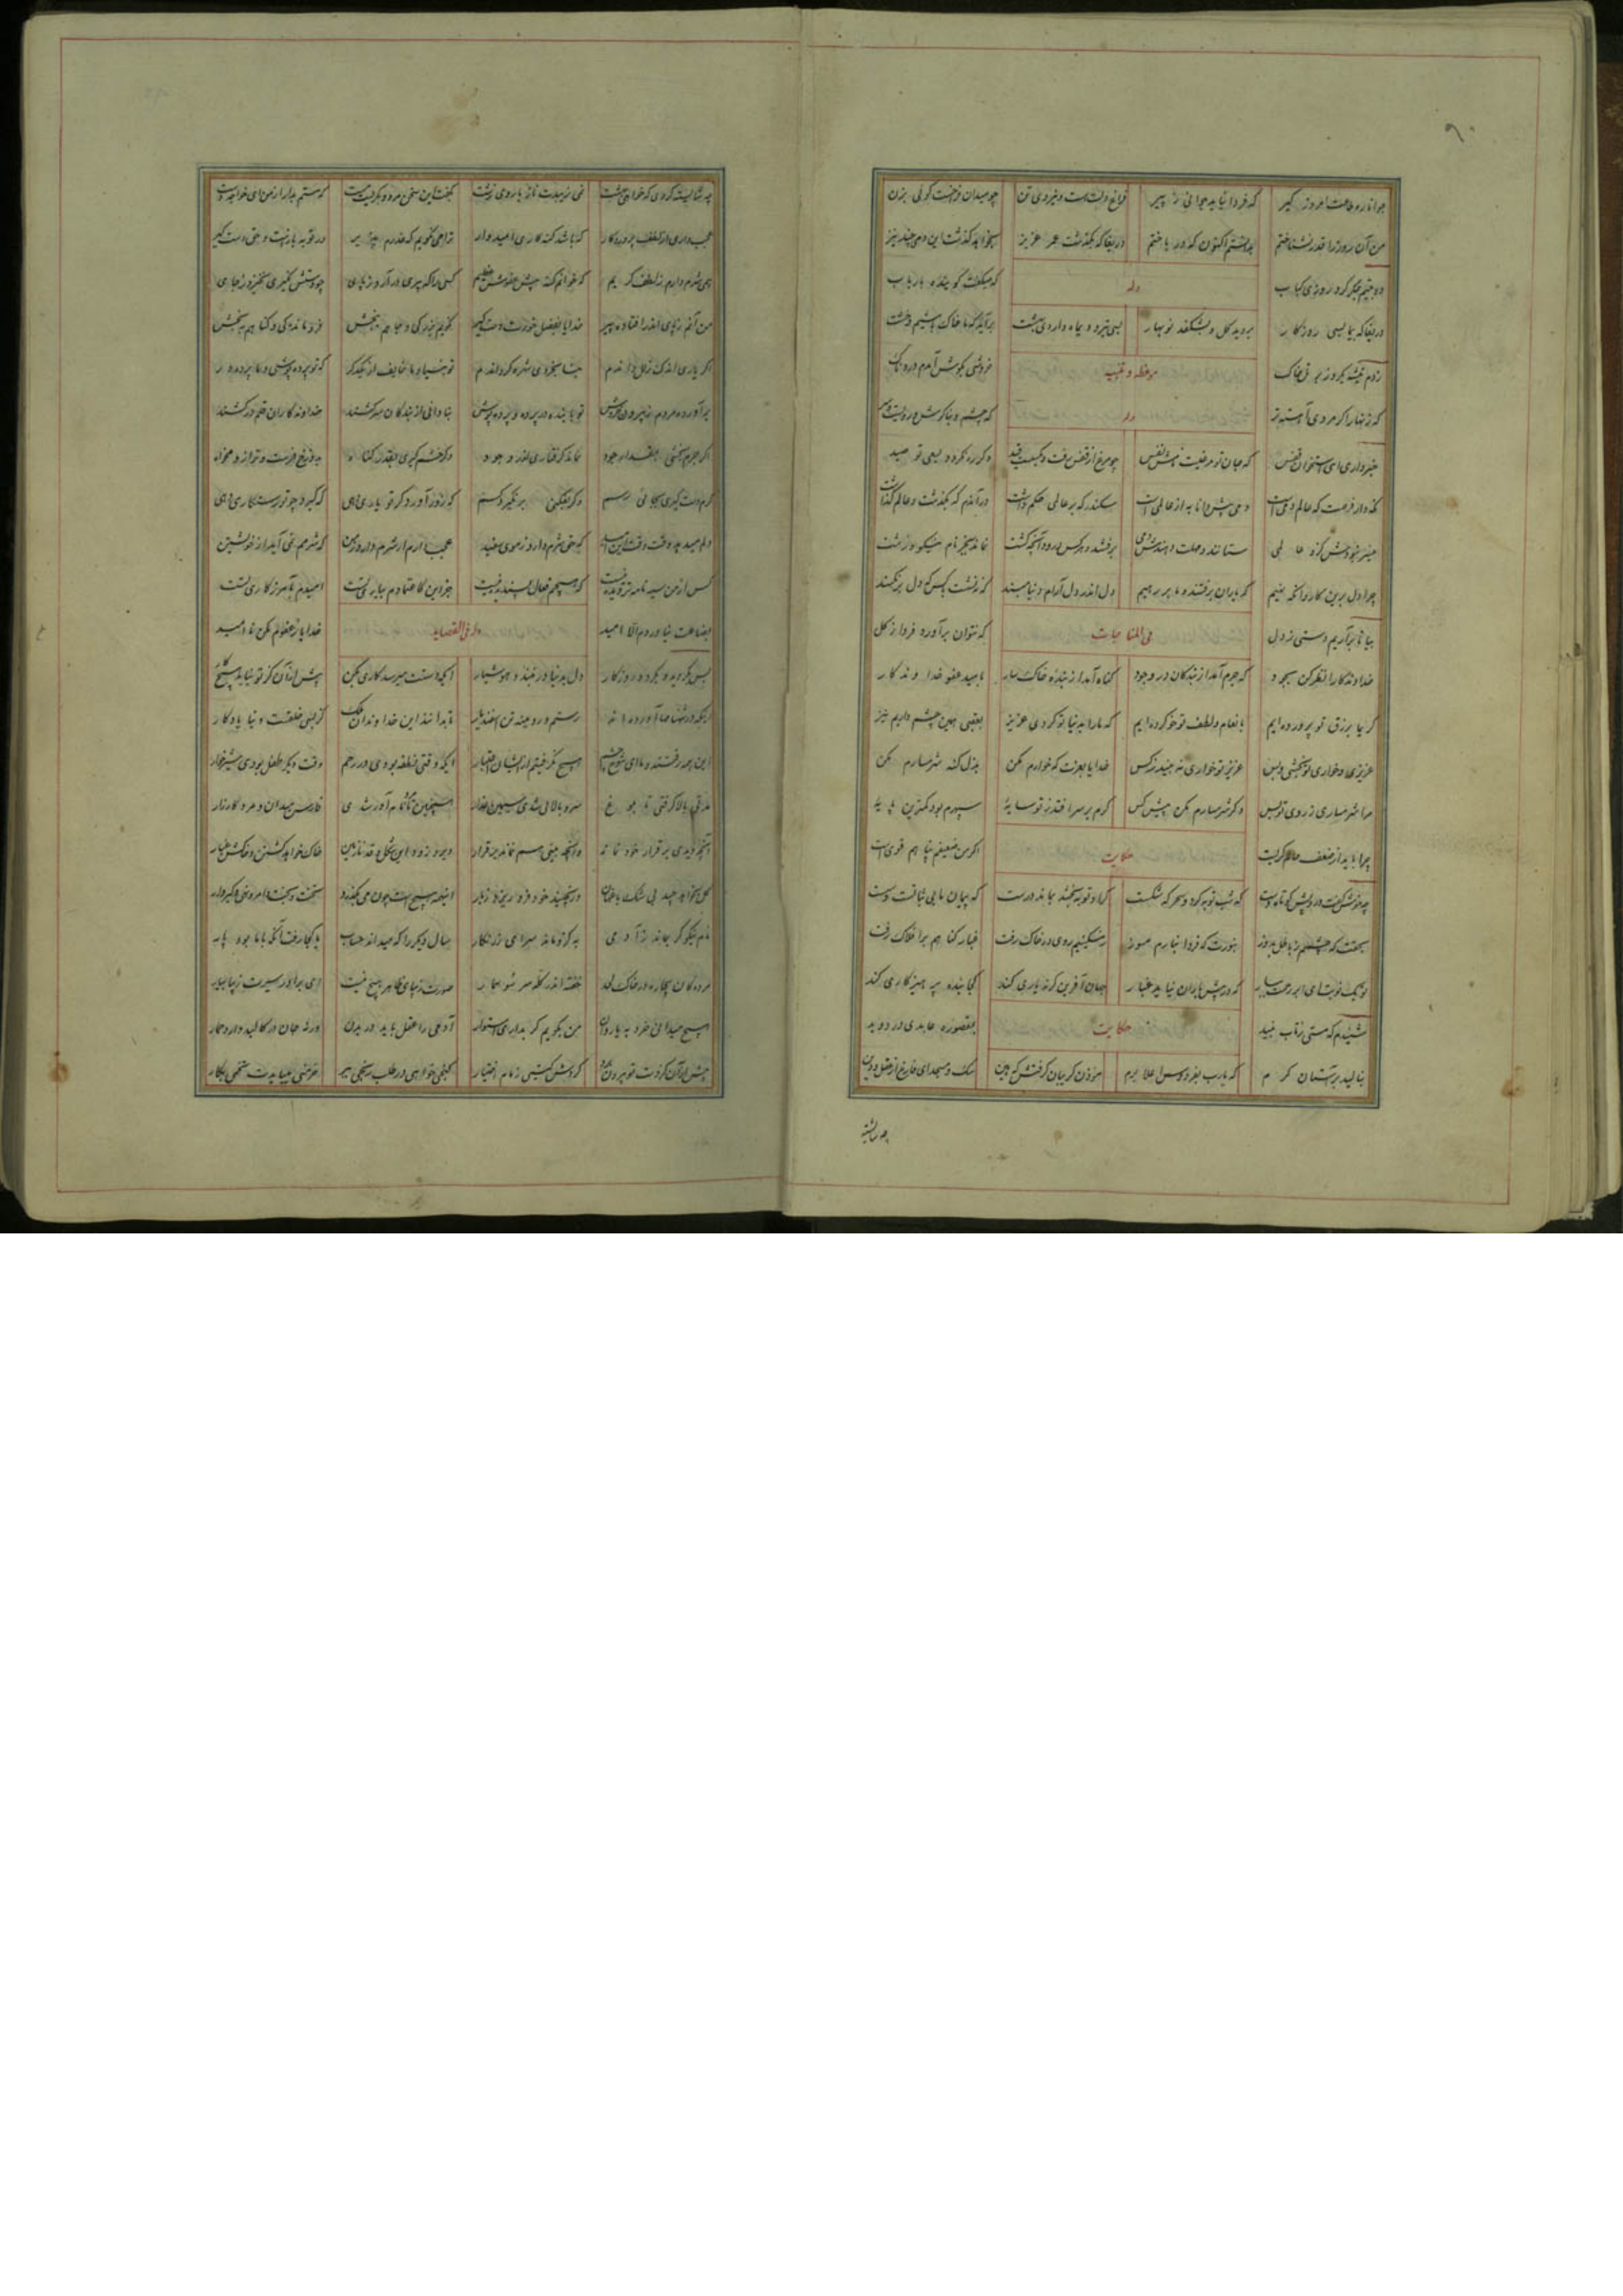 جوانا ره طاعت امروز گیر که فردا نیاید جوانی ز پیر فراغ دلت هست و نیروی تن چو میدان فراخست گوئی بزن
من آن روز را قدر نشناختم بدانستم اکنون که درباختم دریغا که بگذشت عمر عزیز بخواهد گذشت این دمی چند نیز
دو بیتم جگر کرد روزی کباب وله که میگفت گوینده با رباب
دریغا که بی ما بسی روزگار بروید گل و بشکفد نوبهار بسی تیر و دیماه و اردیبهشت برآید که ما خاک باشیم و خشت
زدم تیشه یکروز بر تل خاک موعظه و تنبیه خروشی بگوش آمدم دردناک
که زنهار اگر مردی آهسته تر وله که چشم و بناگوش و رویست و سر
خبر داری ای استخوان قفس که جان تو مرغیست نامش نفس چو مرغ از قفس رفت و بگسست قید دگر ره نگردد بسعی تو صید
نگه دار فرصت که عالم دمی است دمی پیش دانا به از عالمی است سکندر که بر عالمی حکم داشت در آندم که بگذشت و عالم گذاشت
میسر نبودش کزو عالمی ستانند و مهلت دهندش دمی برفتند و هر کس درود آنچه کشت نماند بجز نام نیکو و زشت
چرا دل برین کاروانگه نهیم که یاران برفتند و ما بر رهیم دل اندر دلارام دنیا مبند که ننشست با کس که دل برنکند
بیا تا برآریم دستی ز دل فی المناجات که نتوان برآورد فردا ز گل
خداوندگارا نظر کن بجود که جرم آمد از بندگان در وجود گناه آمد از بنده خاکسار بامید عفو خداوندگار
کریما برزق تو پرورده ایم بانعام و لطف تو خو کرده ایم که ما را بدنیا تو کردی عزیز بعقبی همین چشم داریم نیز
عزیزی و خواری تو بخشی و بس عزیز تو خواری نه بیند ز کس خدایا بعزت که خوارم مکن بذل گنه شرمسارم مکن
مرا شرمساری ز روی تو بس دگر شرمسارم مکن پیش کس گرم بر سر افتد ز تو سایه سپهرم بود کمترین پایه
چرا باید از ضعف حالم گریست حکایت اگر من ضعیفم پناهم قوی است
چه خوش گفت درویش کوتاه دست که شب توبه کرد و سحرگه شکست گر او توبه بخشد بماند درست که پیمان ما بی ثباتست و سست
بحقت که چشمم ز باطل بدوز بنورت که فردا بنارم مسوز ز مسکینیم روی در خاک رفت غبار گناهم بر افلاک رفت
تو یک نوبت ای ابر رحمت ببار که در پیش باران نیاید غبار جهان آفرین گر نه یاری کند کجا بنده پرهیزکاری کند
شنیدم که مستی ز تاب نبید حکایت بمقصوره عابدی در دوید
بنالید بر آستان کرم که یارب بفردوس اعلا برم مؤذن گریبان گرفتش که هین سگ و مسجد ای فارغ از عقل و دین
چه شایسته
چه شایسته کردی که خواهی بهشت نمی زیبدت ناز با روی زشت بگفت این سخن مرد و بگریست مست که مستم بدار از من ای خواجه دست
عجب داری از لطف پروردگار که باشد گنه کاری امیدوار ترا می نگویم که عذرم پذیر در توبه بازست و حق دستگیر
همی شرم دارم ز لطف کریم که خوانم گنه پیش عفوش عظیم کسی را که پیری درآرد ز پای چو دستش نگیری نخیزد ز جای
من آنم ز پای اندر افتاده پیر خدایا بفضل خودت دست گیر نگویم بزرگی و جاهم ببخش فروماندگی و گناهم ببخش
اگر یاری اندک زلل داندم بنابخردی شهره گرداندم تو بینا و ما خایف از یکدگر که تو پرده پوشی و ما پرده در
برآورده مردم ز بیرون خروش تو با بنده در پرده و پرده پوش بنادانی ار بندگان سرکشند خداوندگاران قلم درکشند
اگر جرم بخشی بمقدار جود نماند گرفتاری اندر وجود وگر خشم گیری بقدر گناه بدوزخ فرست و ترازو مخواه
گرم دست گیری بجائی رسم وگر بفکنی بر نگیرد کسم که زور آورد گر تو یاری دهی که گیرد چو تو رستگاری دهی
دلم میدهد وقت وقت این امید که حق شرم دارد ز موی سفید عجب دارم ار شرم دارد ز من که شرمم نمی آید از خویشتن
کس از من سیه نامه تر دیده نیست که هیچم فعال پسندیده نیست جز این کاعتمادم بیاری تست امیدم بآمرزگاری تست
بضاعت نیاوردم الا امید وله فی القصاید خدایا ز عفوم مکن ناامید
بس بگردید و بگردد روزگار دل بدنیا در نبندد هوشیار ایکه دستت میرسد کاری بکن پیش از آن کز تو نیاید هیچ کار
اینکه در شهنامها آورده اند رستم و رویینه تن اسفندیار تا بدانند این خداوندان ملک کز بسی خلقست دنیا یادگار
این همه رفتند و ما ای شوخ چشم هیچ نگرفتیم از ایشان اعتبار ایکه وقتی نطفه بودی در رحم وقت دیگر طفل بودی شیرخوار
مدتی بالا گرفتی تا بلوغ سرو بالائی شدی سیمین عذار همچنین تا مرد نام آور شدی فارس میدان و مرد کارزار
آنچه دیدی بر قرار خود نماند وانچه بینی هم نماند برقرار دیر و زود این شکل و قد نازنین خاک خواهد گشتن و خاکش غبار
گل بخواهد چید بی شک باغبان ور نچیند خود فرو ریزد ز بار اینهمه هیچ است چون می بگذرد تخت و بخت و امر و نهی و گیر و دار
نام نیکو گر بماند ز آدمی به کزو ماند سرای زرنگار سال دیگر را که میداند حساب یا کجا رفت آنکه با ما بود پار
مردگان بیچاره در خاک لحد خفته اندر کله سر سوسمار صورت زیبای ظاهر هیچ نیست ای برادر سیرت زیبا بیار
هیچ میدانی خرد به یا روان من بگویم گر بداری استوار آدمی را عقل باید در بدن ورنه جان در کالبد دارد حمار
پیش از آن کز دست تو بیرون برد گردش گیتی زمام اختیار گنج خواهی در طلب رنجی ببر خرمنی میبایدت تخمی بکار